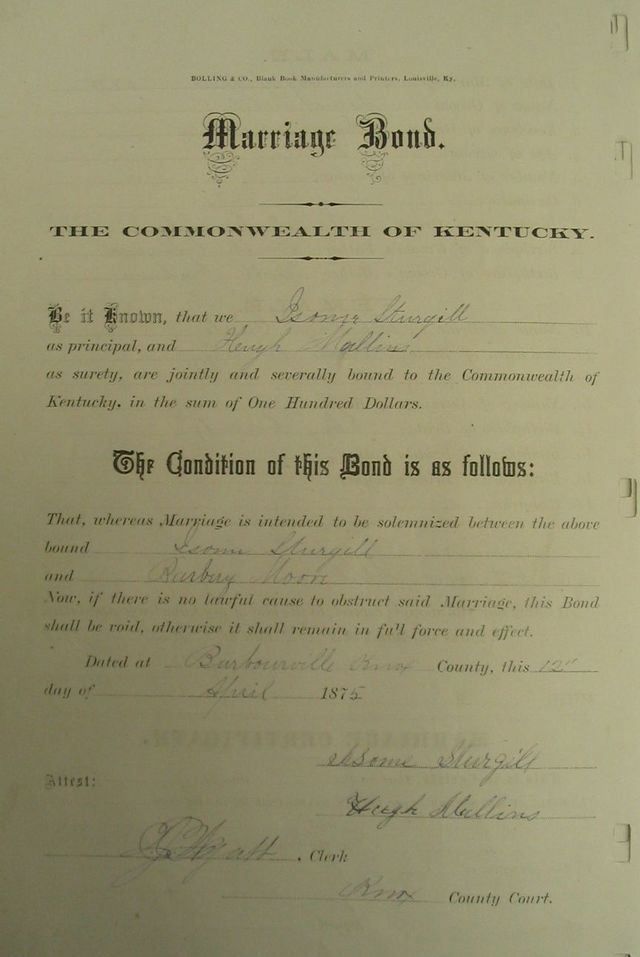 BOLLING & CO., Blank Book Manufacturers and Printers, Louisville, Ky.
Marriage Bond.
THE COMMONWEALTH OF KENTUCKY.
Be it Known, that we Isome Sturgill
as principal, and Heugh Mallins
as surety, are jointly and severally bound to the Commonwealth of
Kentucky, in the sum of One Hundred Dollars.
The Condition of this Bond is as follows:
That, whereas Marriage is intended to be solemnized between the above
bound Isome Sturgill
and Moore
Now, if there is no lawful cause to obstruct said Marriage, this Bond
shall be void, otherwise it shall remain in full force and effect.
Dated at Barbourville Knox County, this 12"
day of April 1875
Isome Sturgill
Attest:
Hugh Mullins
Wyatt, Clerk
Knox County Court.